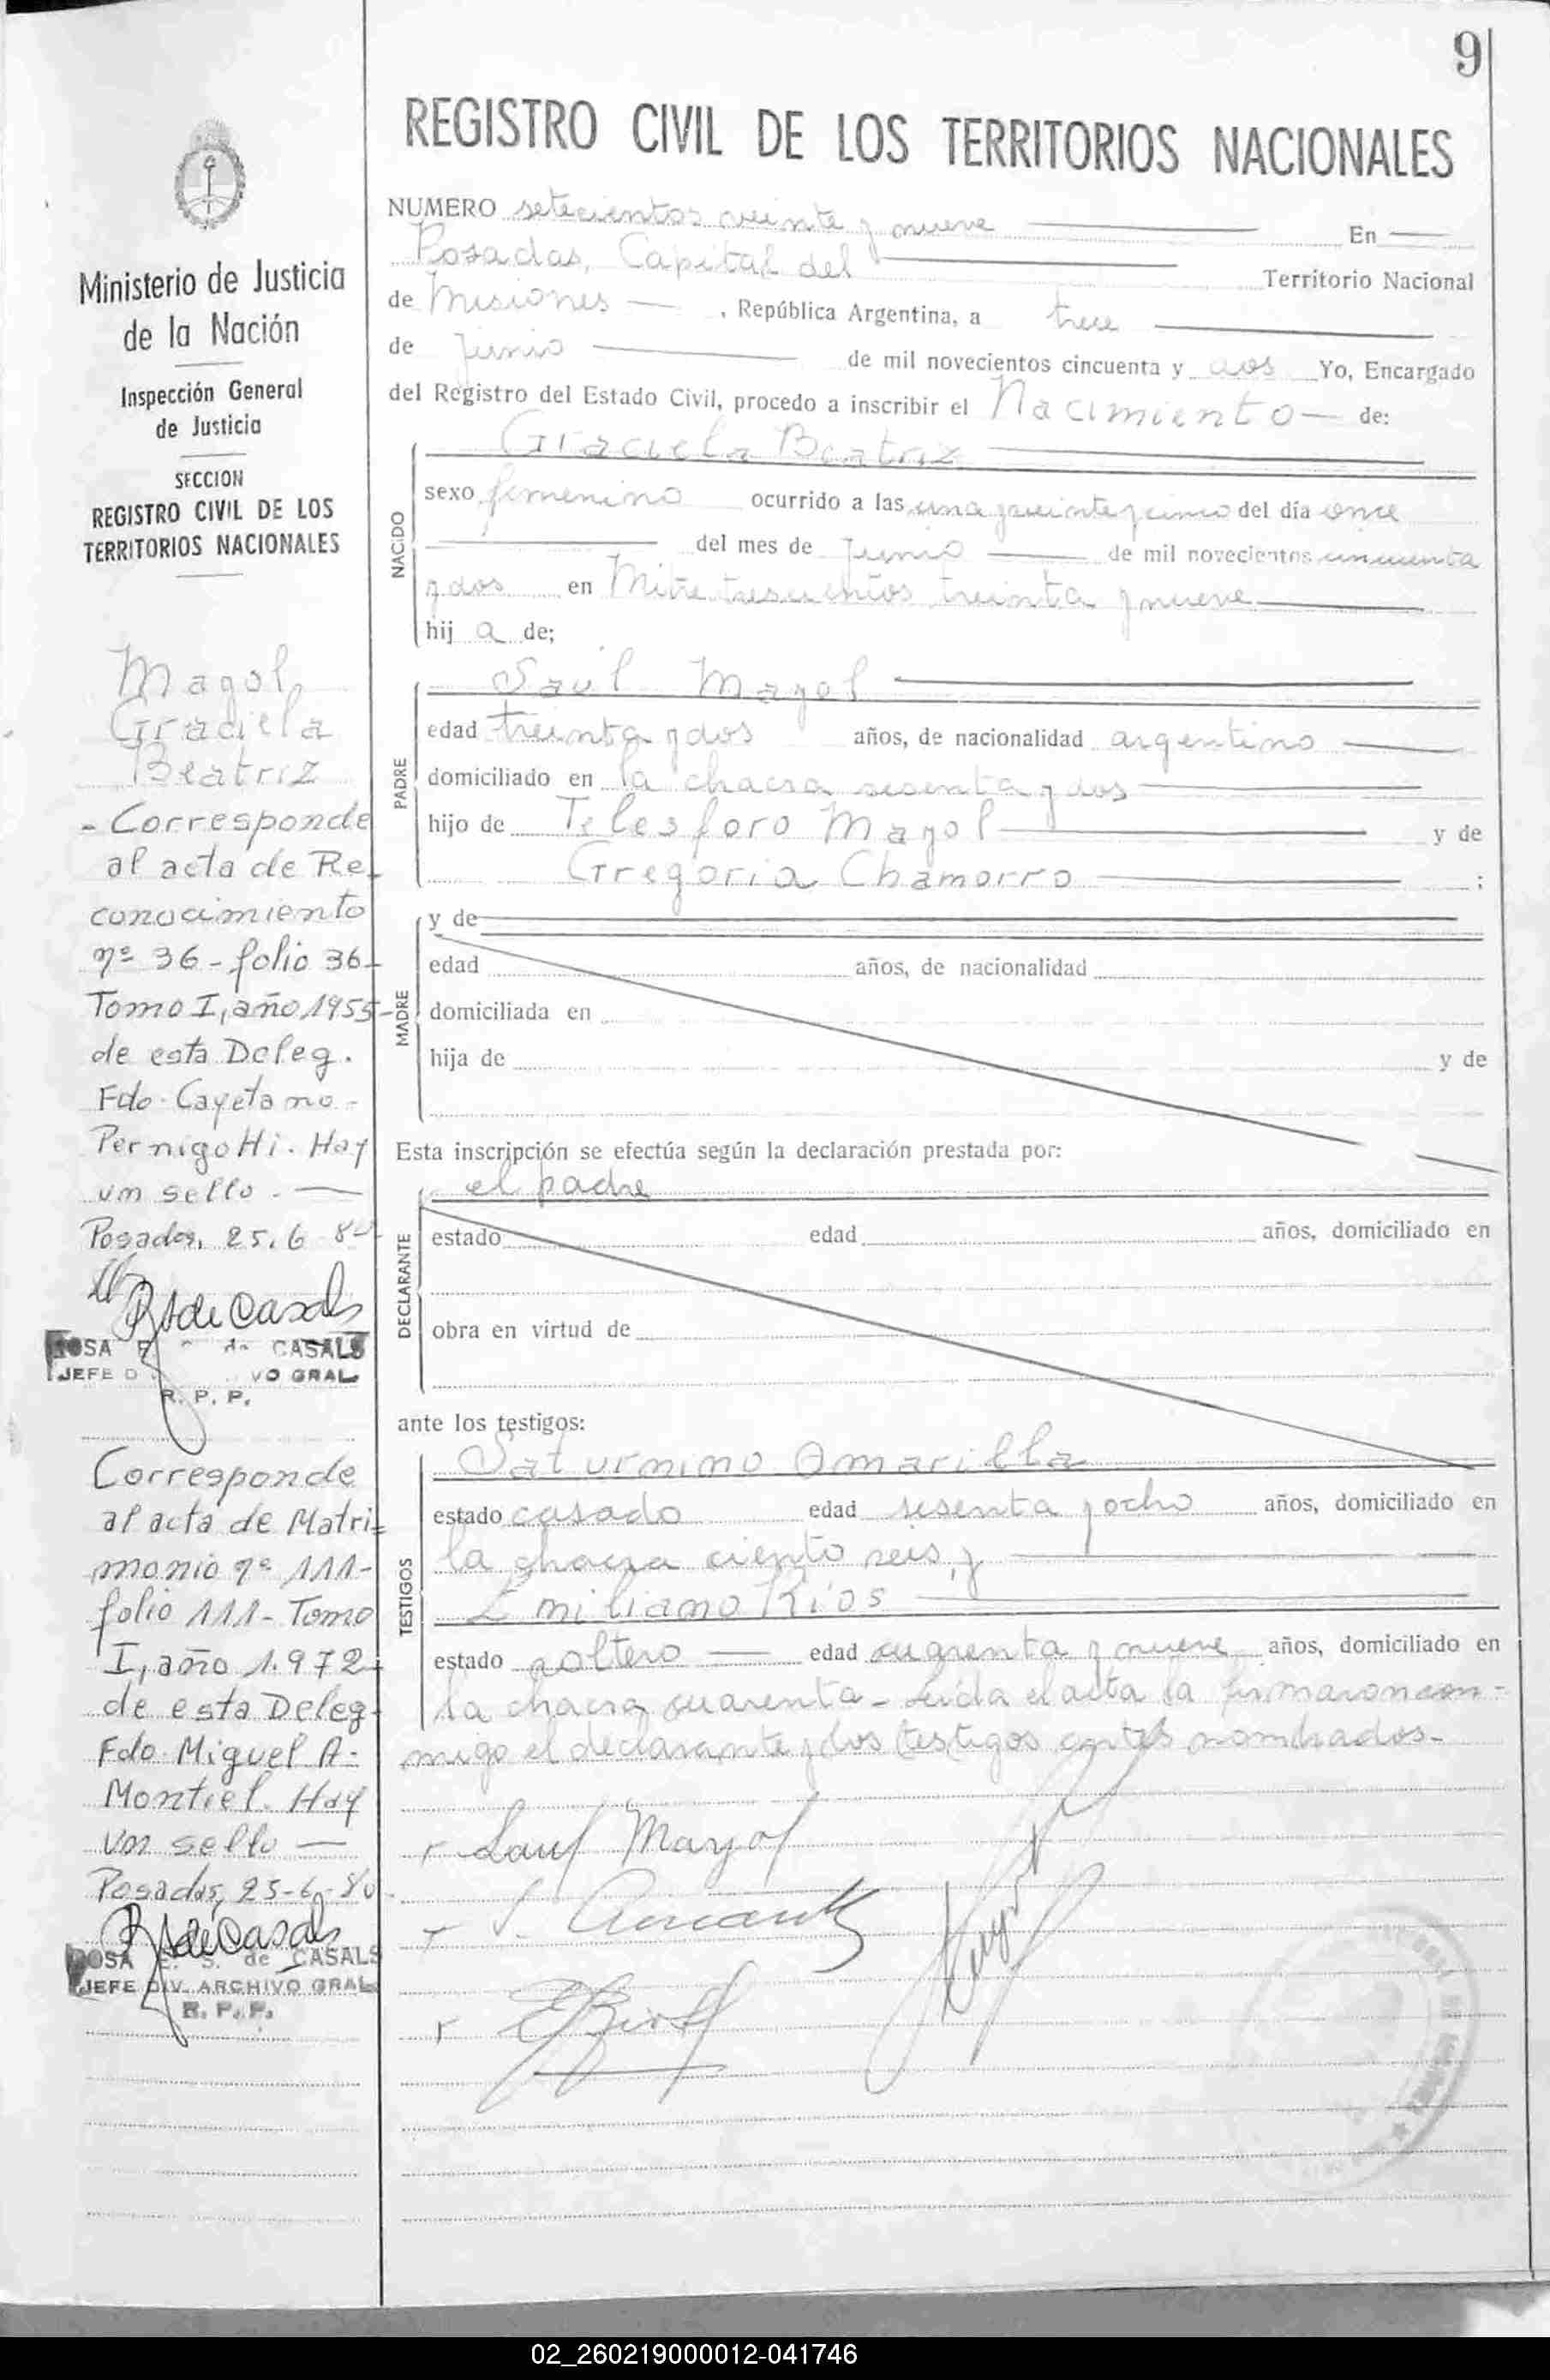 9
REGISTRO CIVIL DE LOS TERRITORIOS NACIONALES
Ministerio de Justicia
de la Nación
Inspección General
de Justicia
SECCION
REGISTRO CIVIL DE LOS
TERRITORIOS NACIONALES
Mayol
Graciela
Beatriz
- Corresponde
al acta de Re-
conocimiento
nº 36 - folio 36-
Tomo I, año 1955-
de esta Deleg.
Fdo. Cayetano
Pernigotti. Hay
um sello. —
Posadas, 25.6 80
R S de Casals
ROSA de CASALS
JEFE D VO GRAL
R. P. P.
Corresponde
al acta de Matri-
monio nº 111-
folio 111- Tomo
I, año 1.972-
de esta Deleg-
Fdo. Miguel A.
Montiel. Hay
un sello —
Posadas, 25-6-80
R S de Casals
ROSA E. S. de CASALS
JEFE DIV. ARCHIVO GRAL
R. P. P.
NUMERO setecientos veinte y nueve En
Posadas, Capital del Territorio Nacional
de Misiones — , República Argentina, a trece
de Junio de mil novecientos cincuenta y dos Yo, Encargado
del Registro del Estado Civil, procedo a inscribir el Nacimiento — de:
NACIDO
Graciela Beatriz
sexo femenino ocurrido a las una y veinte y cinco del día once
del mes de Junio de mil novecientos cincuenta
y dos en Mitre trescientos treinta y nueve
hij a de;
PADRE
Saúl Mayol
edad treinta y dos años, de nacionalidad argentino
domiciliado en la chacra sesenta y dos
hijo de Telesforo Mayol y de
Gregoria Chamorro ;
MADRE
y de
edad años, de nacionalidad
domiciliada en
hija de y de
Esta inscripción se efectúa según la declaración prestada por:
DECLARANTE
el padre
estado edad años, domiciliado en
obra en virtud de
ante los testigos:
TESTIGOS
Saturnino Amarilla
estado casado edad sesenta y ocho años, domiciliado en
la chacra ciento seis, y
Emiliano Ríos
estado soltero — edad cuarenta y nueve años, domiciliado en
la chacra cuarenta - Leída el acta la firmaron con-
migo el declarante y los testigos antes nombrados-
Saul Mayol
02_260219000012-041746